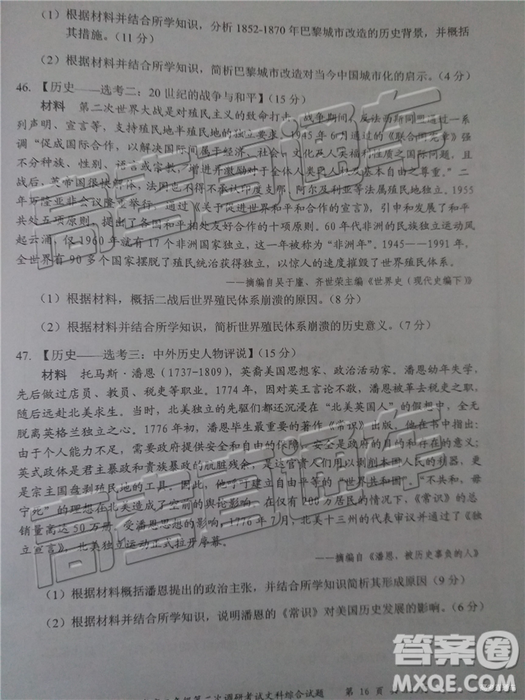 (1) 根据材料并结合所学知识，分析 1852-1870 年巴黎城市改造的历史背景，并概括
其措施。(11 分)
(2) 根据材料并结合所学知识，简析巴黎城市改造对当今中国城市化的启示。(4 分)
46. 【历史——选考二：20 世纪的战争与和平】(15 分)
材料 第二次世界大战是对殖民主义的致命打击。战争期间，反法西斯同盟通过一系
列声明、宣言等，支持殖民地半殖民地的独立要求。1945 年 6 月通过的《联合国宪章》强
调“促成国际合作，以解决国际间属于经济、社会、文化及人类福利性质之国际问题，且
不分种族、性别、语言或宗教，增进并激励对于全体人类之人权及基本自由之尊重。”二
战后，英帝国很快解体，法国也不得不承认印度支那、阿尔及利亚等法属殖民地独立。1955
年万隆亚非会议通过《关于促进世界和平与合作的宣言》，引申和发展了和平
共处五项原则，提出了各国和平相处友好合作的十项原则。60 年代非洲的民族独立运动风
起云涌，仅 1960 年就有 17 个非洲国家独立。这一年被称为“非洲年”。1945—1991 年，
全世界有 90 多个国家摆脱了殖民统治获得独立，以惊人的速度摧毁了世界殖民体系。
——摘编自吴于廑、齐世荣主编《世界史（现代史编下）》
(1) 根据材料，概括二战后世界殖民体系崩溃的原因。(8 分)
(2) 根据材料并结合所学知识，简析世界殖民体系崩溃的历史意义。(7 分)
47. 【历史——选考三：中外历史人物评说】(15 分)
材料 托马斯·潘恩（1737-1809），英裔美国思想家、政治活动家。潘恩早年失学，
先后做过店员、教员、税吏等职业。1774 年，因对英王言论不敬，潘恩无法在英国立足，
随后远赴北美求生。当时，美国独立的先驱们都还沉浸在“北美英国人”的假想中，全无
脱离英格兰独立之心。1776 年初，潘恩毕生最重要的著作《常识》出版，他在书中指出：
由于个人能力不足，需要政府提供安全和自由的
英式政体是君主暴政和贵族暴政的残余，
是宗主国盘剥殖民地的工具。因此，他呼吁建立自由与独立的“世界共和国”。“不共和，毋
宁死”的理想在北美造成了空前的舆论影响。在仅有 200 万居民的情况下，《常识》的总
销量高达 50 万册。受潘恩思想的影响，1776 年 7 月，北美十三州的代表审议并通过了《独
立宣言》，北美独立运动正式拉开序幕。
——摘编自《潘恩，被历史辜负的人》
(1) 根据材料概括潘恩提出的政治主张，并结合所学知识简析其形成原因（9 分）
(2) 根据材料并结合所学知识，说明潘恩的《常识》对美国历史发展的影响。(6 分)
第二次调研考试文科综合试题 第 16 页
高考直通车
高考直通车
答案圈
MXQE.COM